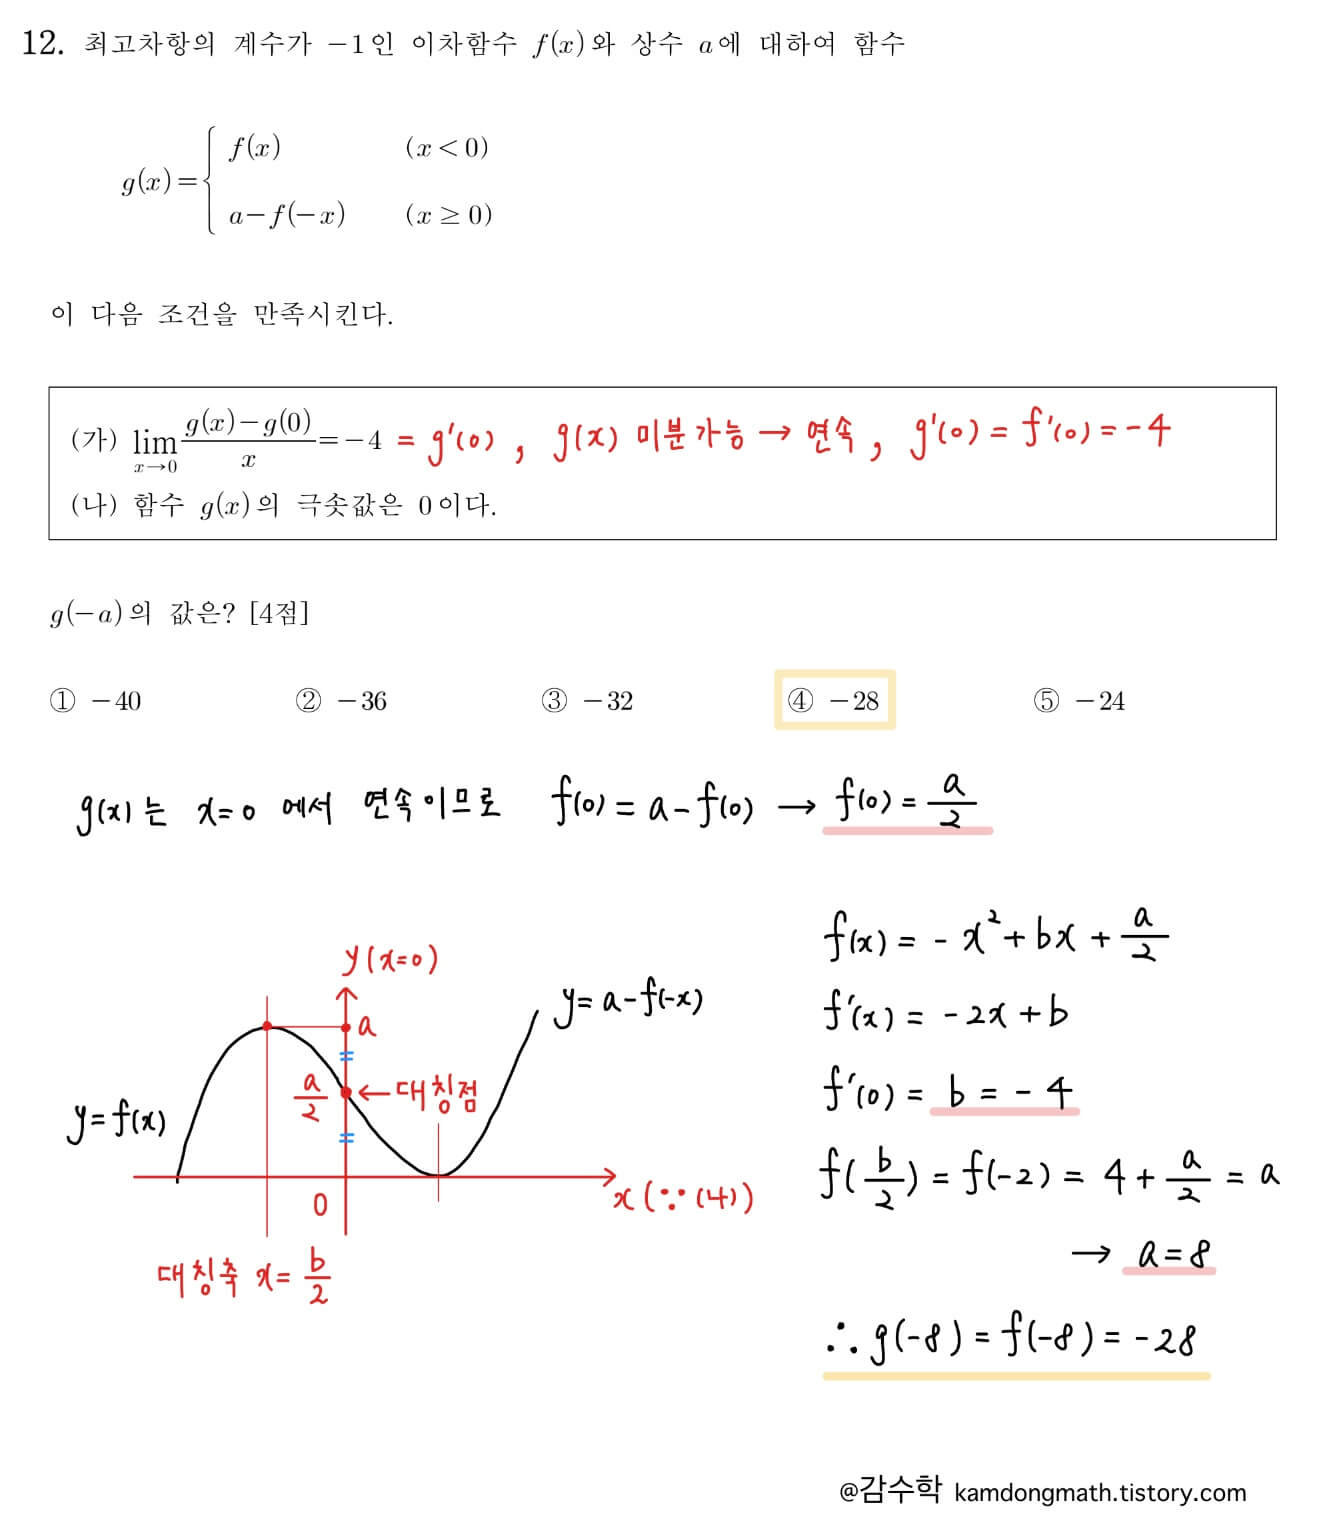 12. 최고차항의 계수가 −1인 이차함수 f(x)와 상수 a에 대하여 함수
g(x)= { f(x) (x<0)
a−f(−x) (x≥0)
이 다음 조건을 만족시킨다.
(가) lim x→0 (g(x)−g(0))/x = −4 = g'(0) , g(x) 미분가능 → 연속 , g'(0) = f'(0) = -4
(나) 함수 g(x)의 극솟값은 0이다.
g(−a)의 값은? [4점]
① −40 ② −36 ③ −32 ④ −28 ⑤ −24
g(x)는 x=0 에서 연속이므로 f(0) = a - f(0) → f(0) = a/2
y(x=0)
a
a/2 ← 대칭점
y=f(x)
y=a-f(-x)
0
x (∵ (나))
대칭축 x= b/2
f(x) = - x² + bx + a/2
f'(x) = -2x + b
f'(0) = b = -4
f(b/2) = f(-2) = 4 + a/2 = a
→ a=8
∴ g(-8) = f(-8) = -28
@감수학 kamdongmath.tistory.com